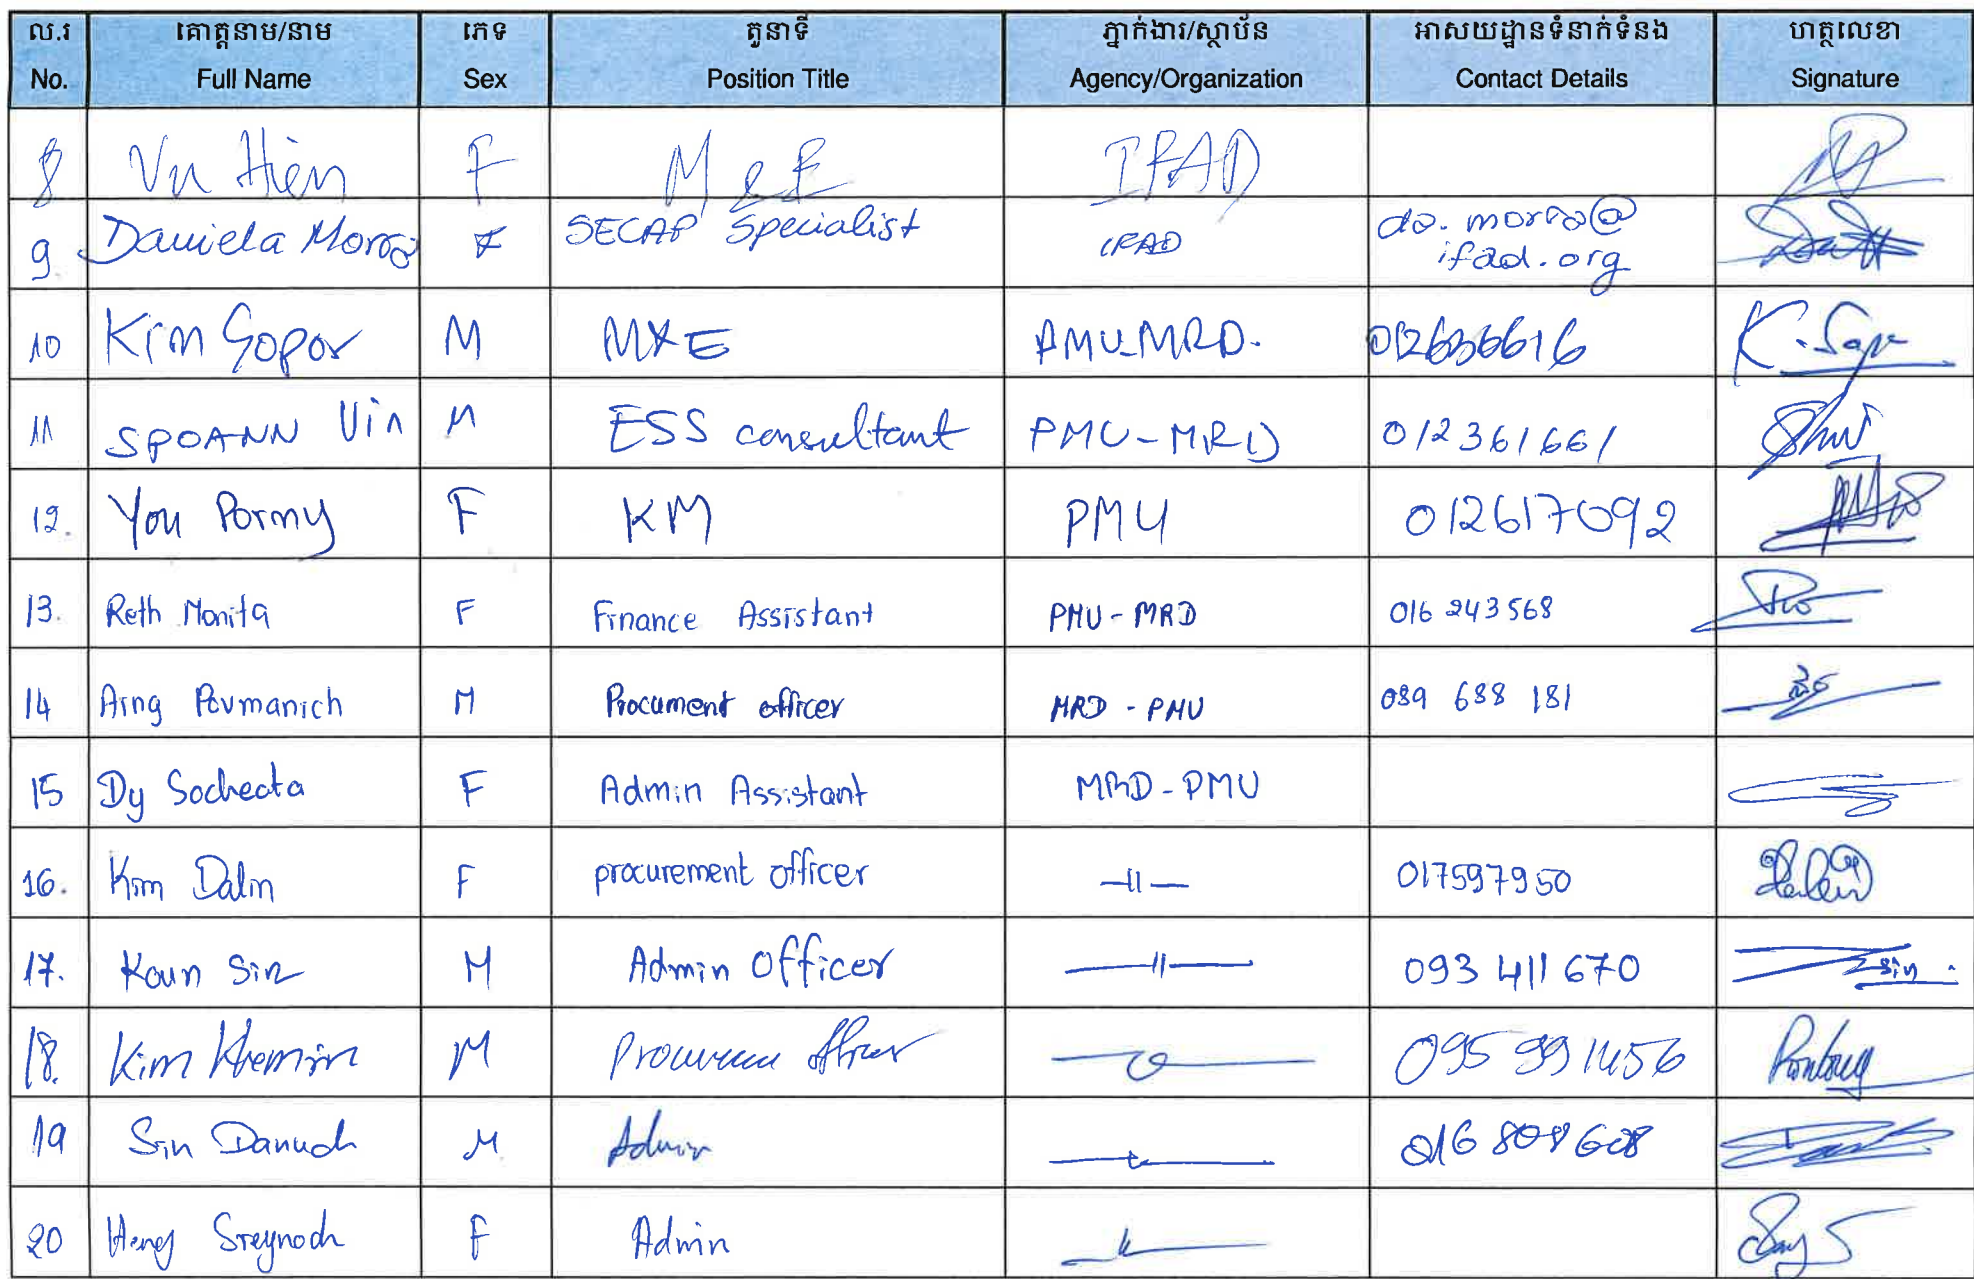 ល.រ គោត្តនាម/នាម ភេទ តួនាទី ភ្នាក់ងារ/ស្ថាប័ន អាសយដ្ឋានទំនាក់ទំនង ហត្ថលេខា
No. Full Name Sex Position Title Agency/Organization Contact Details Signature
8 Vu Hien F M & E IFAD
9. Daniela Morra F SECAP Specialist IFAD da.morra@
ifad.org
10 Kim Sopor M M&E PMU-MRD.
11 SPOANN Vin M ESS consultant PMU-MRD 012361661
12. You Pormy F KM PMU 012617092
13. Reth Monita F Finance Assistant PMU-MRD 016 243568
14 Aing Povmanich M Procument officer MRD - PMU 089 688 181
15 Dy Socheata F Admin Assistant MRD-PMU
16. Kim Dalin F procurement officer —11— 017597950
17. Koun Sin M Admin Officer —11— 093 411 670 sin
18. Kim Khemrin M officer 095 991456
19 Sin Danuch M Admin
20 Heng Sreynoch F Admin